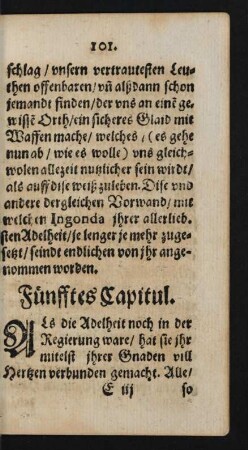 101.
schlag / vnsern vertrautesten Leu-
then offenbaren / vñ alßdann schon
jemandt finden / der vns an einẽ ge-
wissẽ Orth / ein sicheres Glaid mit
Waffen mache / welches / (es gehe
nun ab / wie es wolle) vns gleich-
wolen allezeit nutzlicher sein wirdt /
als auff dise weiß zuleben. Dise vnd
andere dergleichen Vorwand / mit
welchen Ingonda jhrer allerlieb-
sten Adelheit / je lenger je mehr zuge-
setzt / seindt endlichen von jhr ange-
nommen worden.
Fünfftes Capitul.
ALs die Adelheit noch in der
Regierung ware / hat sie jhr
mitelst jhrer Gnaden vill
Hertzen verbunden gemacht. Alle /
E iij so